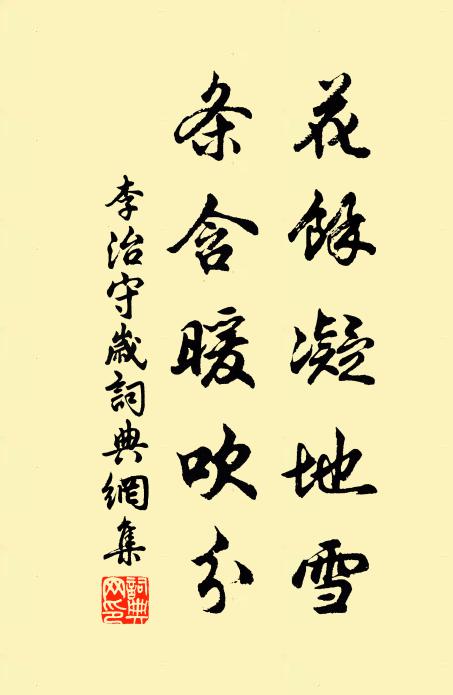 花餘凝地雪
条含暖吹分
李治守歲詞典網集
詞典网印